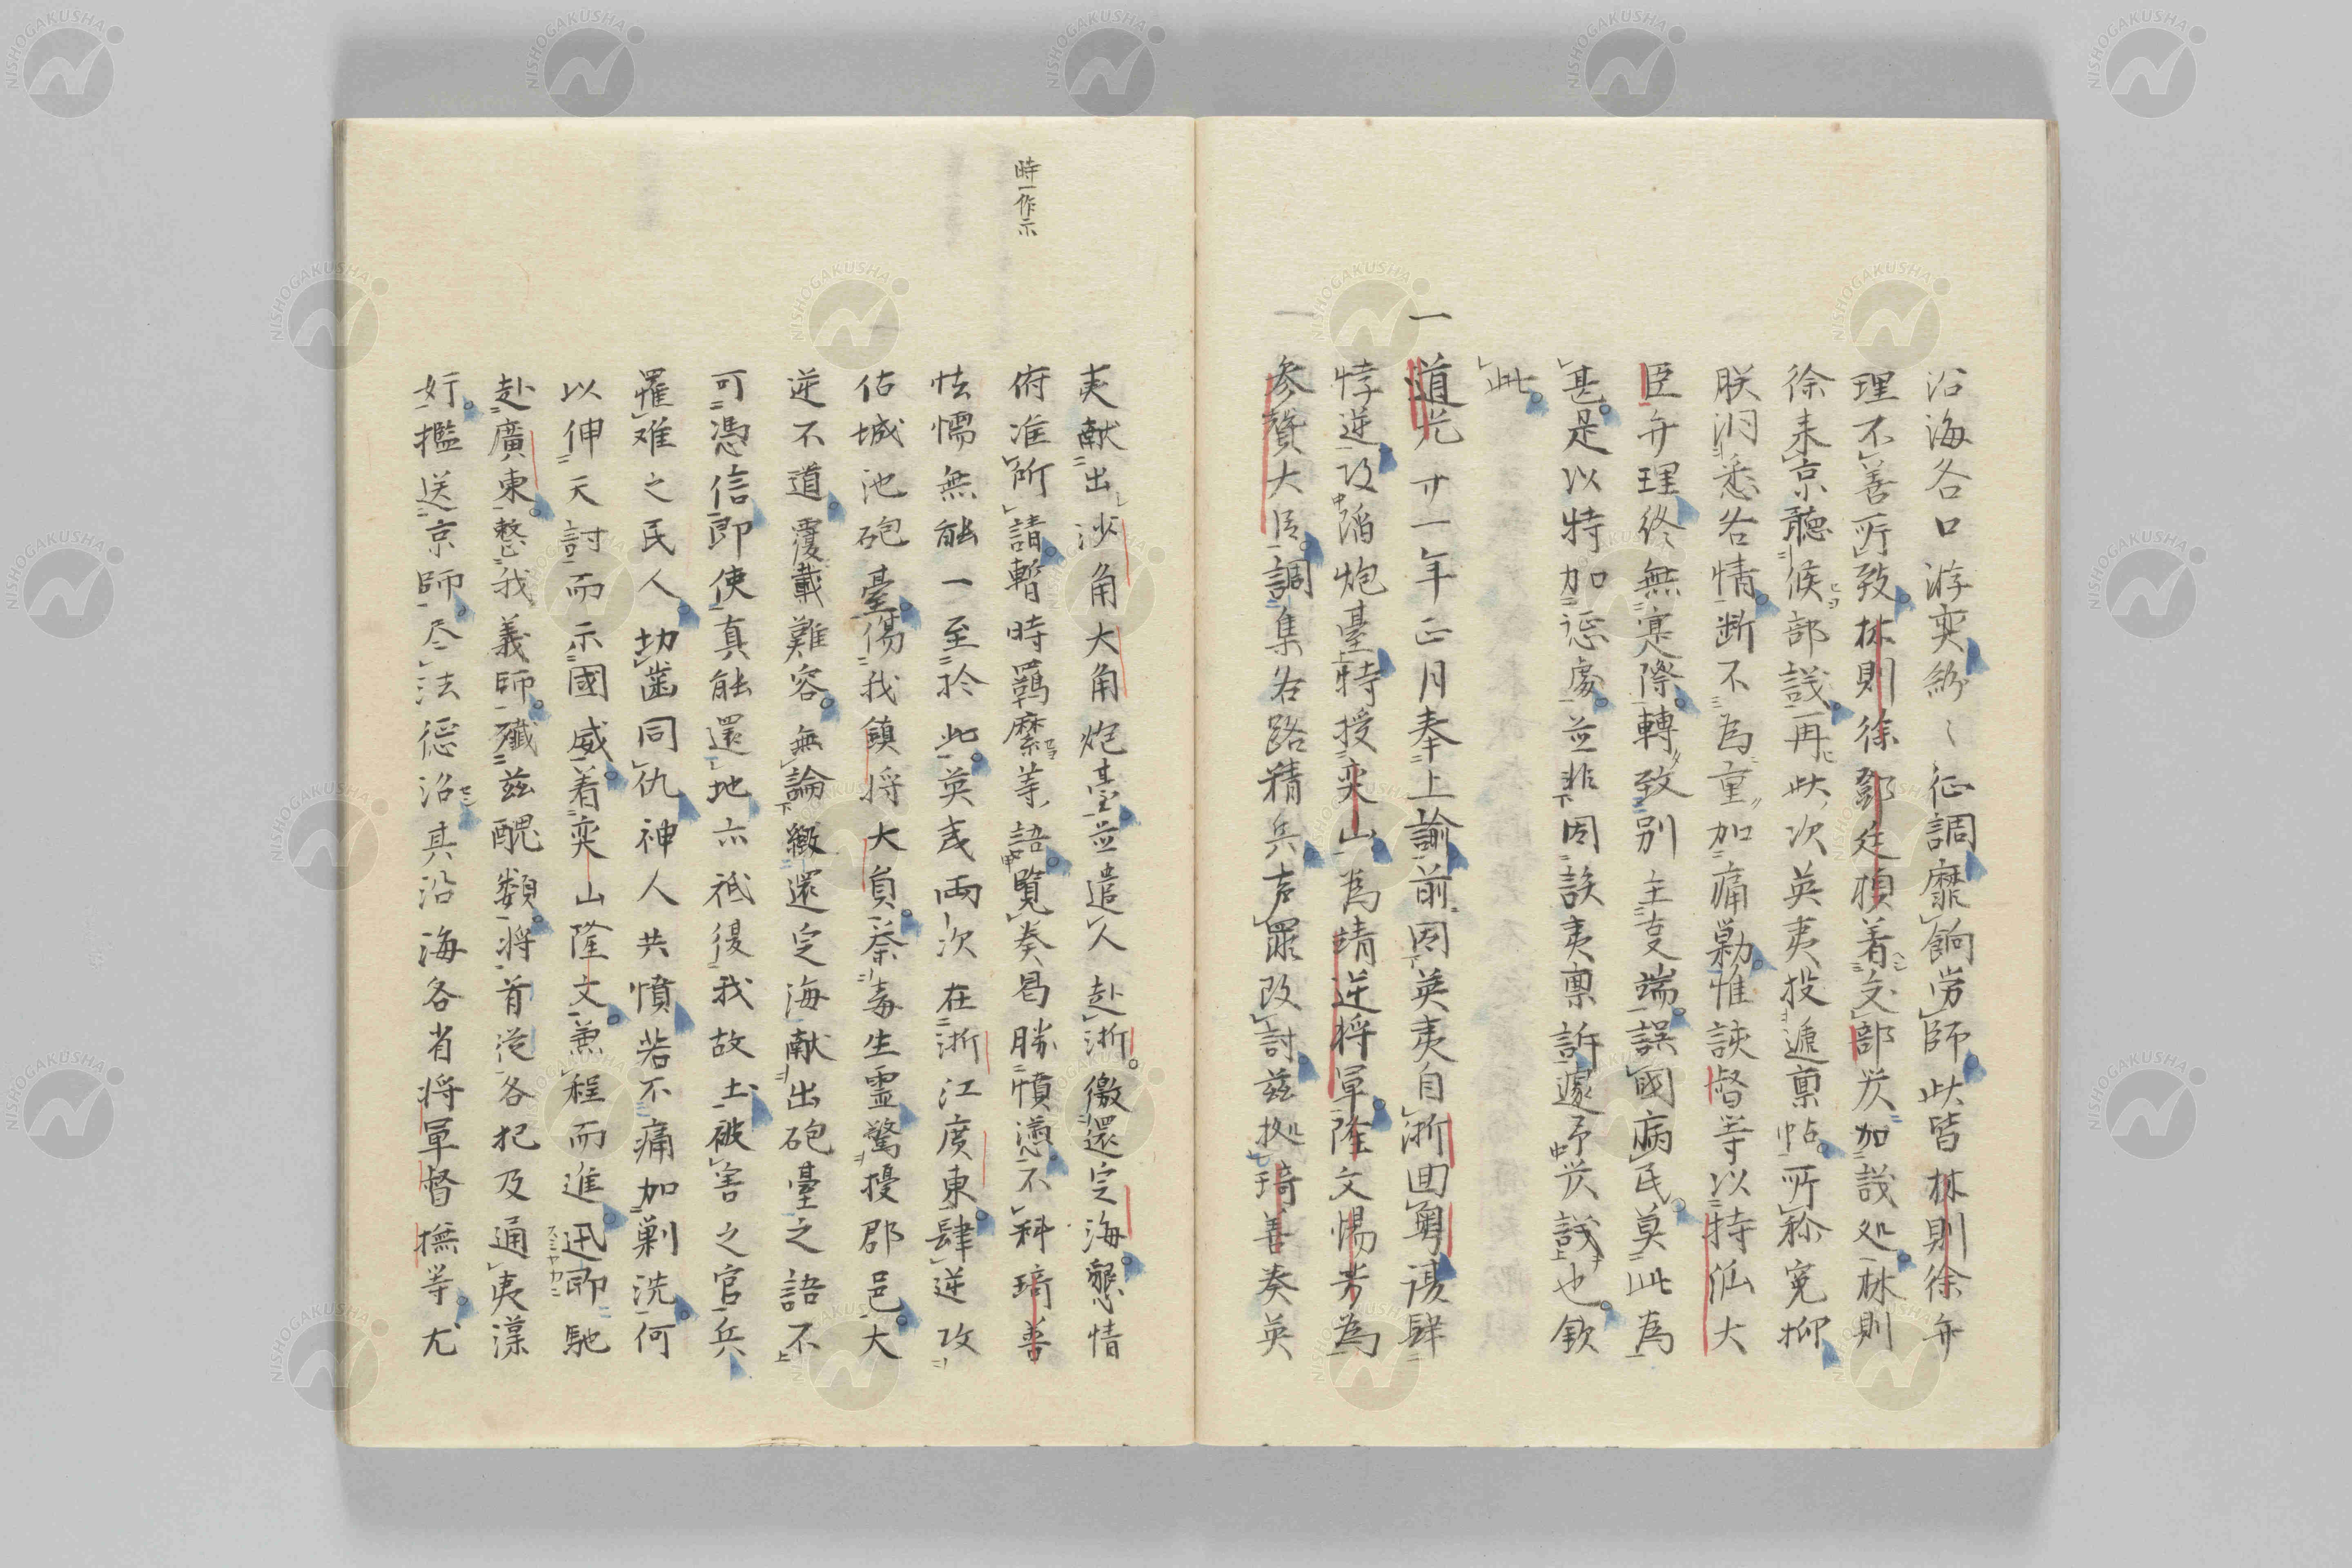 沿海各口游奕紛〻征調靡餉労師此皆林則徐弁
理不善所致林則徐鄧廷楨着交部厳加議処林則
徐来京聴候部議再此次英夷投遞稟帖所称冤抑
朕洞悉各情断不為重加痛勦惟該督等以特派大
臣弁理終無寔際轉致別主支端誤國病民莫此為
甚是以特加懲處並非因該夷稟訴遽予厳議也欽
此
一道光廿一年正月奉上諭前因英夷自浙回粤湏肆
悖逆攻陥炮臺特授奕山為靖逆将軍隆文惕芳為
参賛大臣調集各路精兵声罪改討茲拠琦善奏英
夷献出沙角大角炮臺並遣人赴浙徼還定海懇情
俯准所請暫時羈縻等語覧奏曷勝憤懣不料琦善
怯懦無能一至於此英夷両次在浙江廣東肆逆攻
佔城池砲臺傷我鎮将大員荼毒生霊驚擾郡邑大
逆不道覆載難容無論繳還定海献出砲臺之語不
可憑信即使真能還地亦祗復我故土被害之官兵
罹难之民人切歯同仇神人共憤若不痛加剿洗何
以伸天討而示國威着奕山隆文兼程而進迅即馳
赴廣東整我義師殲茲醜類将首従各犯及通夷漢
奸檻送京師尽法懲治其沿海各省将軍督撫等尤
時一作示